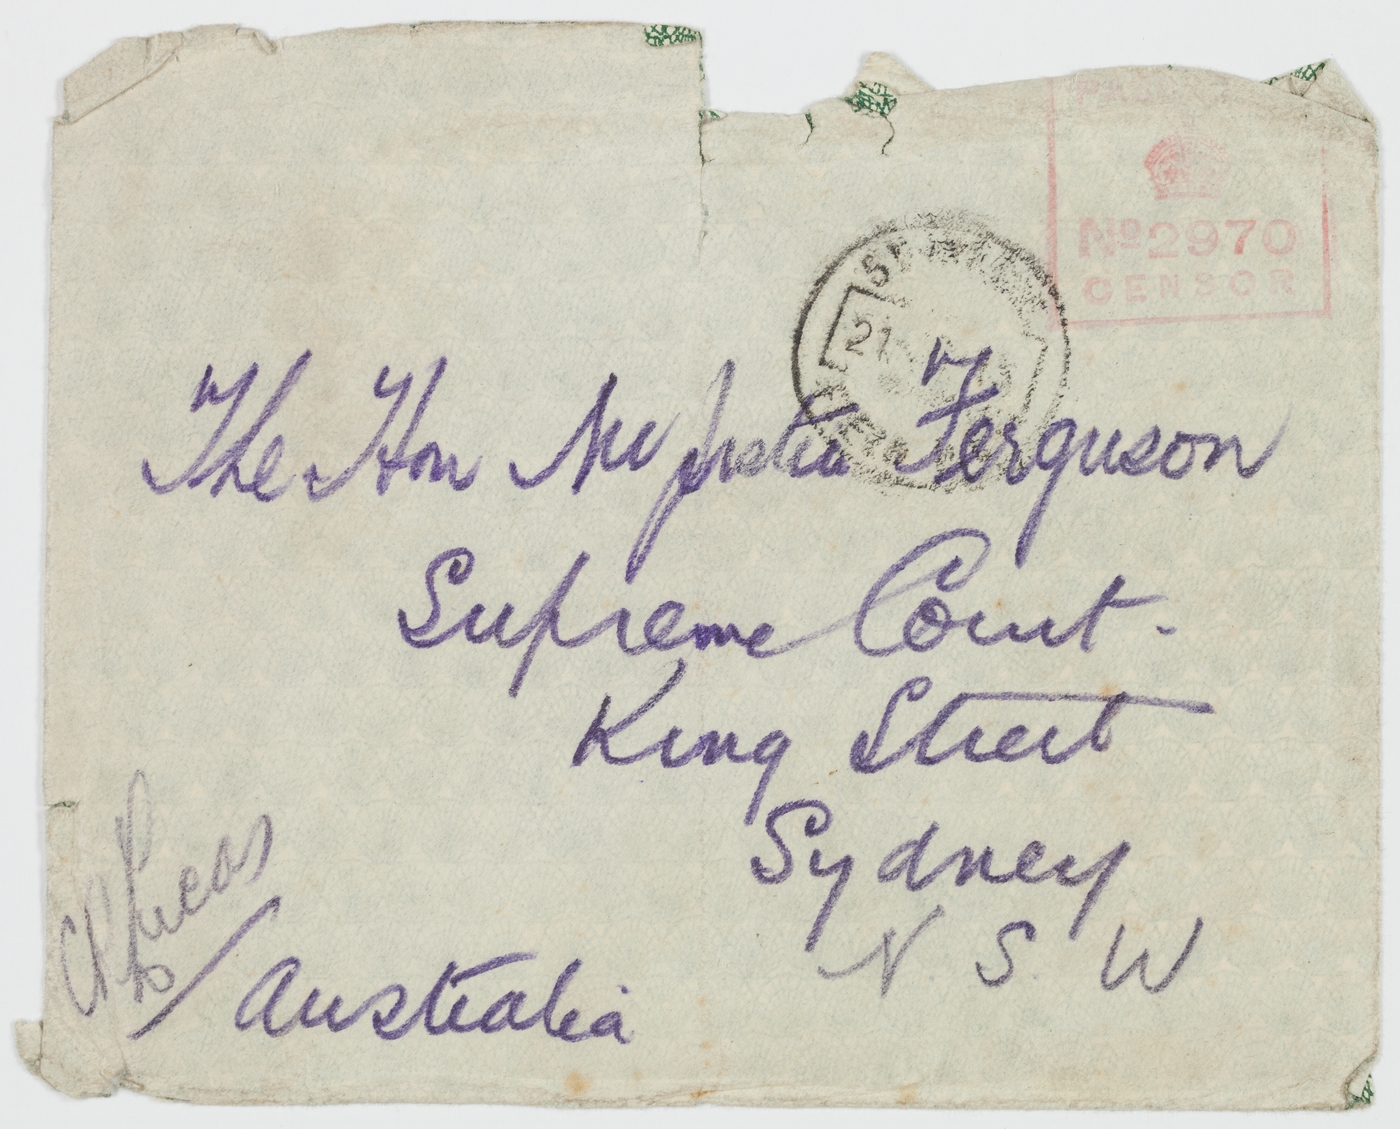 No 2970
CENSOR
21
The Hon Mr Justice Ferguson
Supreme Court.
King Street
Sydney
N. S. W
Lucas
Australia